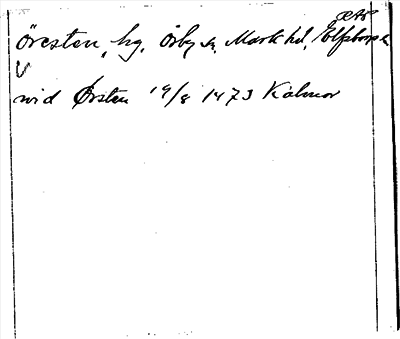 Öresten, hg, Örby s, Mark hd, Elfsborgs l
wid Ørsten 19/8 1473 Kalmar